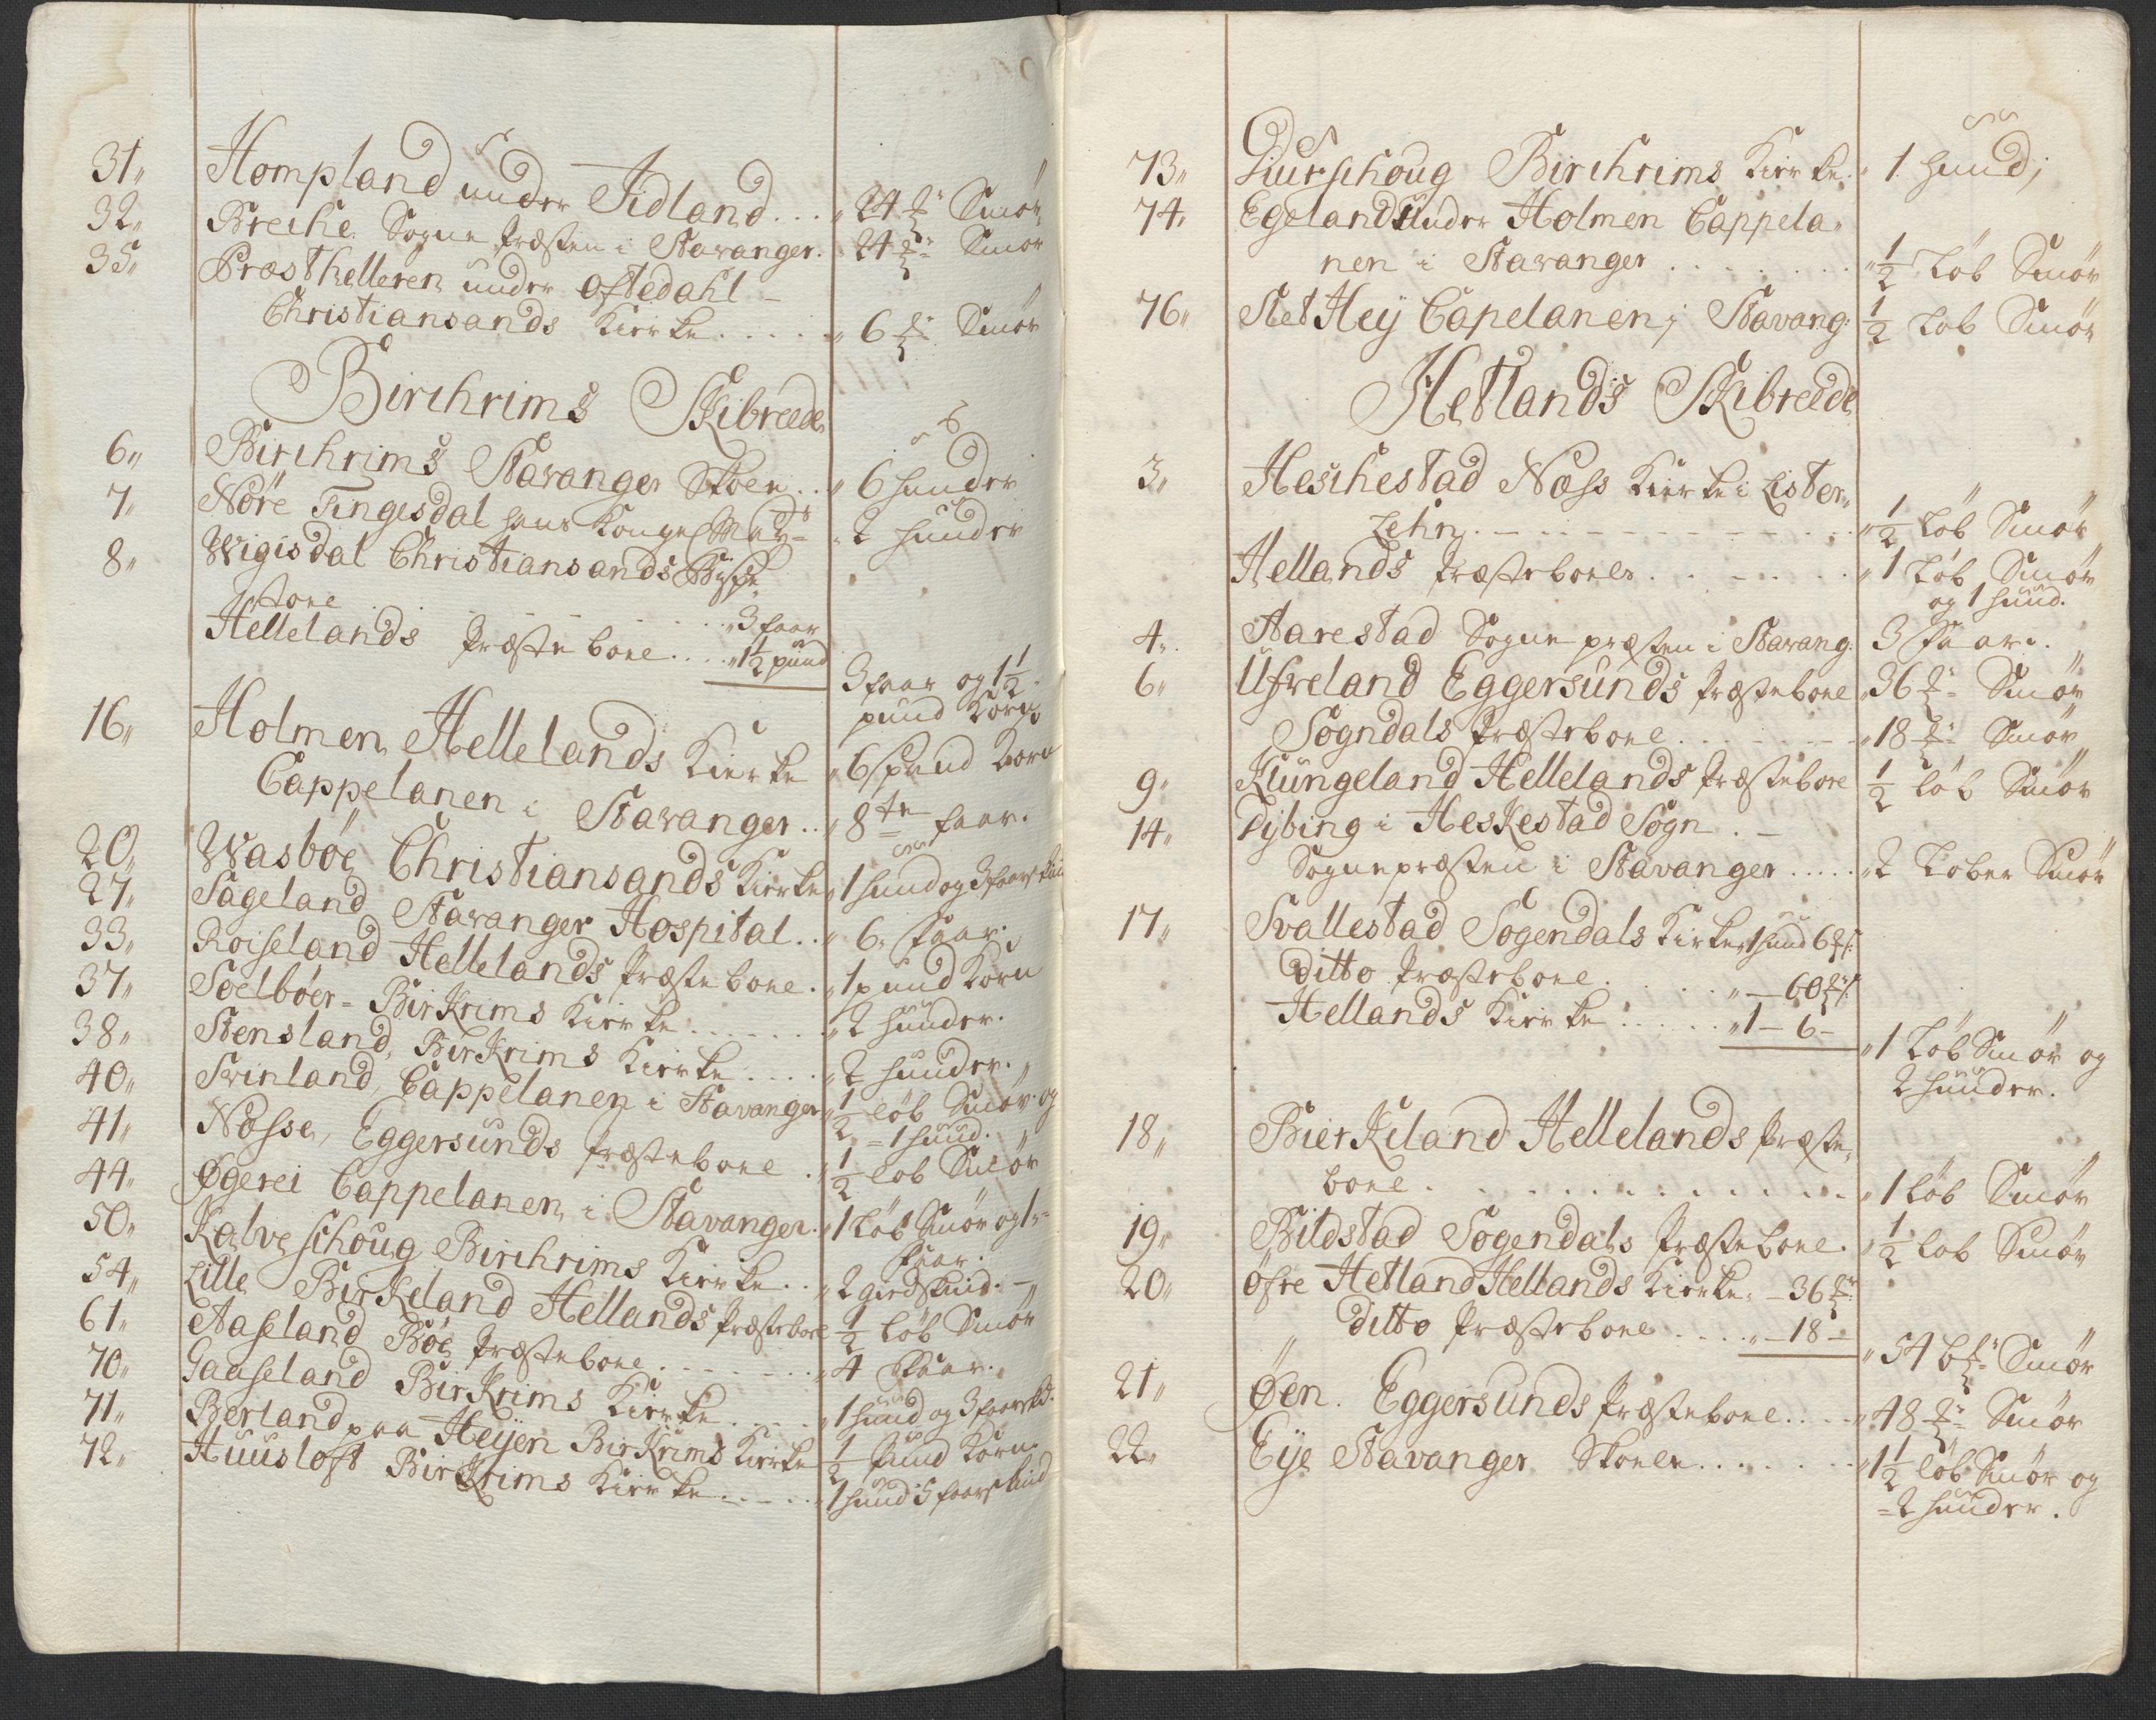 31„ Hompland under Jidland . . . „ 24 ℔ Smør
32„ Breche Sogne Præsten i Stavanger. 24 ℔ Smør
35„ Præsthelleren under Oftedahl –
Christiansands Kirke . . . . „ 6 ℔ Smør
Birchrims Skibreede
6„ Birchrims Stavanger Skoele . . „ 6 huuder
7„ Nöre Tingesdal hans Konge Mayts „ 2 huuder
8„ Wigisdal Christiansands Bispe
stoel . . . . „ 3 faar
Hellelands Præste boel . . . „ 1½ pund
3 faar og 1½
pund Korn
16„ Holmen Hellelands Kirke „ 6 Spand Korn
Cappelanen i Stavanger . . „ 8te faar.
20„ Wasböe Christiansands Kirke „ 1 huud og 3 faareskin
27„ Sageland Stavanger Hospital . . „ 6 faar.
33„ Roiseland Hellelands Præste boel . „ 1 pund Korn
37„ Soelböer – Birkrims Kirke . . . . „ 2 huuder.
38„ Stensland, Birkrims Kirke . . . . „ 2 huuder.
40„ Svinland, Cappelanen i Stavanger „ ½ löb Smör og
„ = 1 huud.
41„ Nösse, Eggersunds Præsteboel . „ ½ løb Smör
44„ Øgerei Cappelanen i Stavanger. „ 1 Löb Smör og 1 –
faar.
50„ Kalve schoug Birchrims Kirke . . „ 2 giedskind. –
54„ Lille Birkeland Hellands Præsteboel ½ löb Smör
61„ Aaseland Böe Præsteboel . . . . . „ 4 faar.
70„ Gaaseland Birkrims Kirke . . . . „ 1 huud og 3 faareskd.
71„ Berland paa Heyen Birkrims Kirke ½ Pund Korn.
72„ Huusloft Birkrims Kirke . . . . . „ 1 huud 5 faareskind
73„ Giurschoug Birchrims Kirke „ 1 huud;
74„ Egeland under Holmen Cappela„
nen i Stavanger . . . . . . . „ ½ Löb Smör
76„ Slet Hey Capelanen i Stavang: ½ Löb Smör
Hetlands Skibreede
3„ Heschestad Næss Kirke i Lister„
Lehn . . . . . . . . . . . „ ½ löb Smör
Hellands Præsteboel . . . . . . „ 1 Löb Smör
og 1 huud.
4„ Aarestad Sogne præsten i Stavang: 3 Faar.
6„ Ufveland Eggersunds Præsteboel „ 36 ℔ Smör
Sogndals Præsteboel . . . . . „ 18 ℔ Smör
9„ Klungeland Hellelands Præsteboel ½ löb Smör
14„ Dybing i Heskestad Sogn . –
Sognepræsten i Stavanger . . . . . „ 2 Løber Smör
17„ Svallestad Sogendals Kirke „ 1 huud 6 ℔
Ditto Præsteboel . . . . . „ — 60 ℔
Hellands Kirke . . . . . „ 1 – 6 –
„ 1 Löb Smör og
2 huuder.
18„ Bierkeland Hellelands Præste„
boel . . . . . . . . . . . . „ 1 löb Smör
19„ Bildstad Sogendals Præsteboel. „ ½ løb Smör
20„ Öfre Hetland Hellands Kirke. – 36 ℔
Ditto Præsteboel . . . . „ – 18 –
„ 54 ℔ Smör
21„ Øen. Eggersunds Præsteboel . . . . „ 48 ℔ Smör
22„ Eije Stavanger Skoele . . . . . . „ 1½ löb Smör og
= 2 huuder.